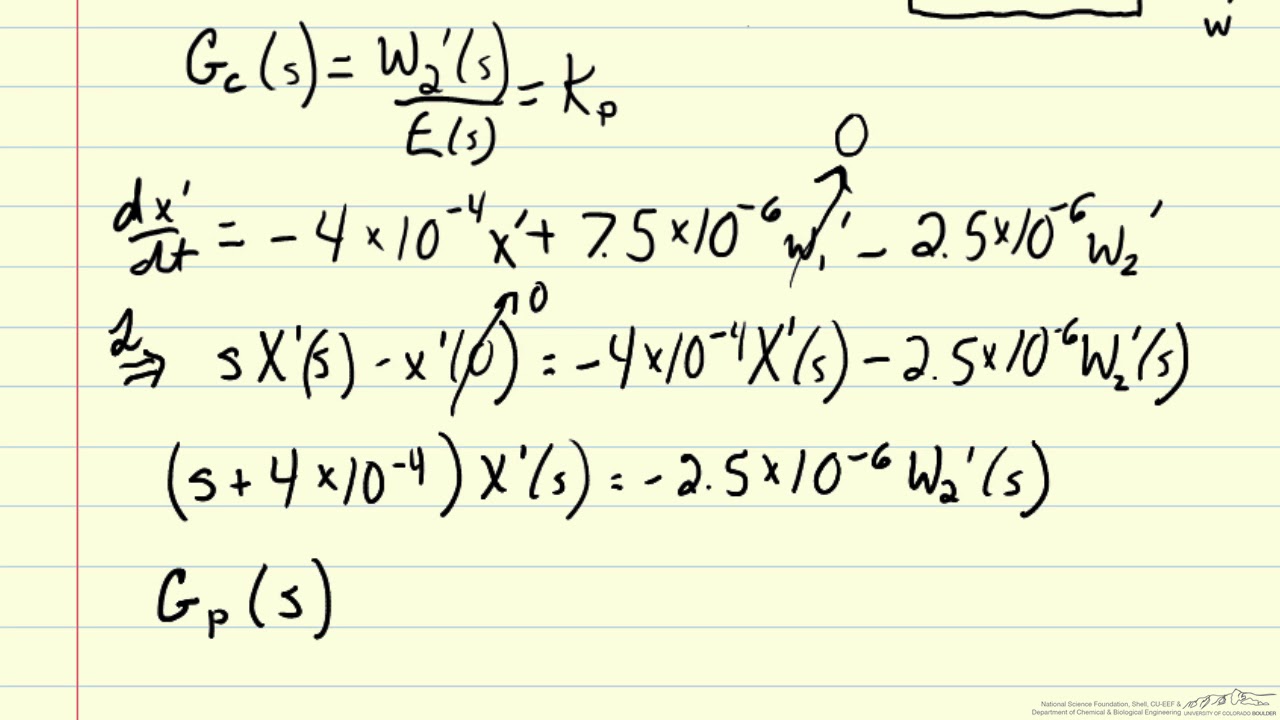 w
G_c(s) = W_2'(s) / E(s) = K_p
0
dx'/dt = - 4 × 10^-4 x' + 7.5 × 10^-6 w_1' - 2.5 × 10^-6 w_2'
0
ℒ ⇒ s X'(s) - x'(0) = - 4 × 10^-4 X'(s) - 2.5 × 10^-6 W_2'(s)
(s + 4 × 10^-4) X'(s) = - 2.5 × 10^-6 W_2'(s)
G_p(s)
National Science Foundation, Shell, CU-EEF &
Department of Chemical & Biological Engineering
UNIVERSITY OF COLORADO BOULDER